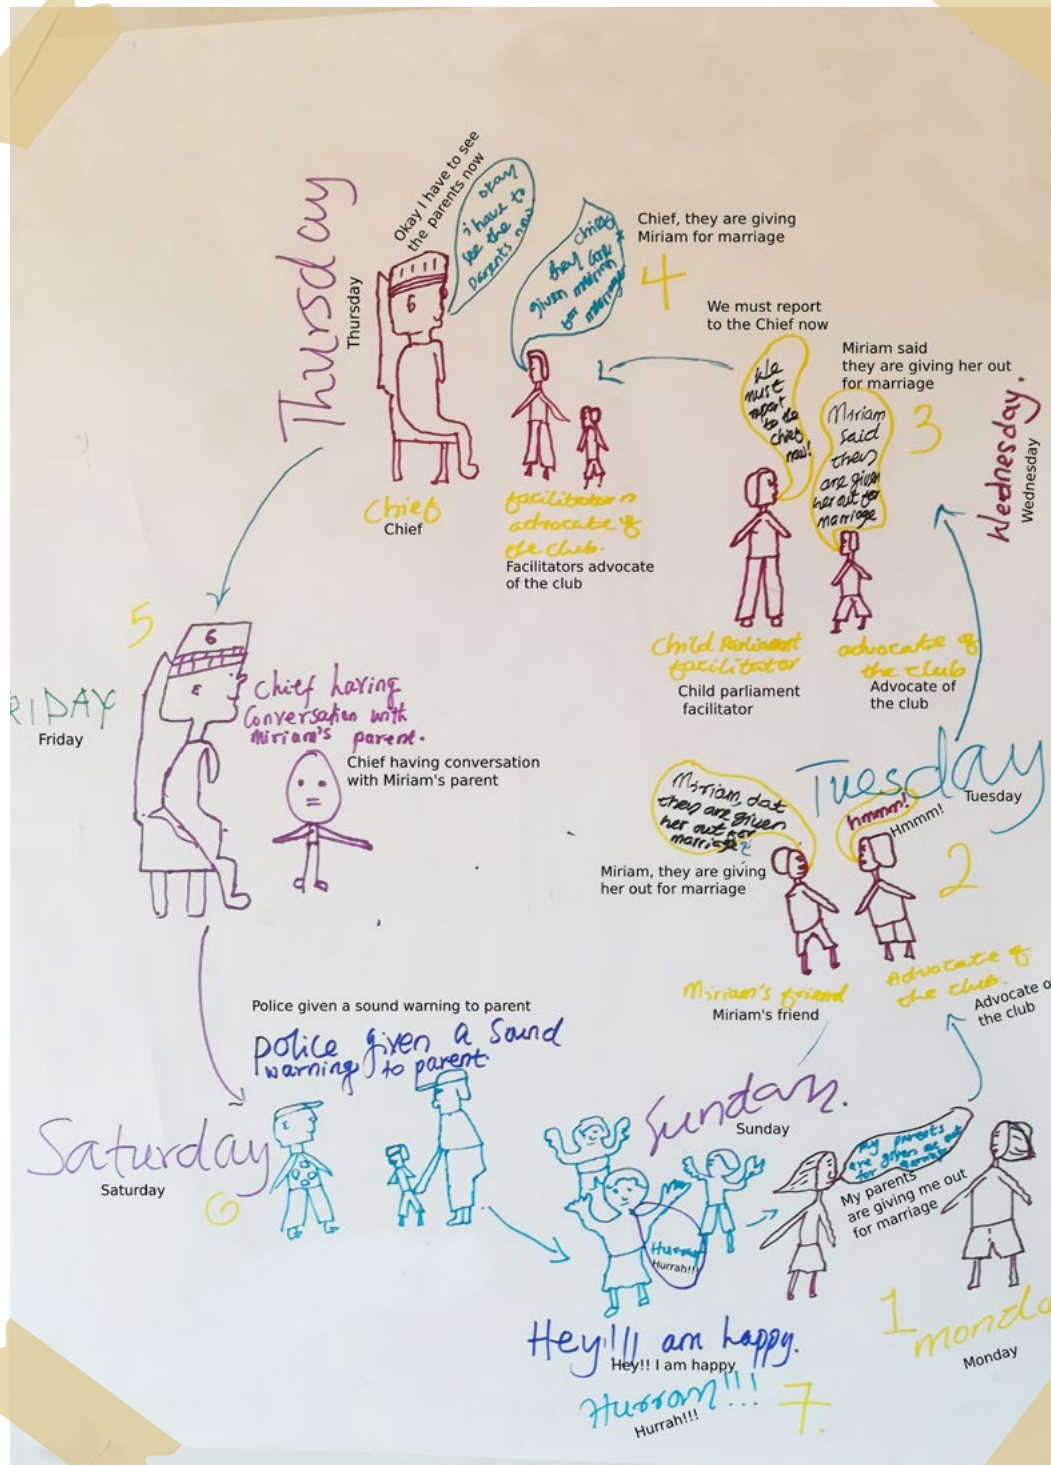 Thursday
Thursday
Okay I have to see
the parents now
okay
i have to
see the
parents now
Chief
they are
given miriam
for marriage
Chief, they are giving
Miriam for marriage
4
Chief
Chief
facilitators
advocate of
the club.
Facilitators advocate
of the club
We must report
to the Chief now
We
must
report
to the
chief
now!
Miriam said
they are giving her out
for marriage
Miriam
said
they
are given
her out for
marriage
3
Wednesday.
Wednesday
Child Parliament
facilitator
Child parliament
facilitator
advocate of
the club
Advocate of
the club
5
6
RIDAY
Friday
Chief having
Conversation with
miriam's parent.
Chief having conversation
with Miriam's parent
Tuesday
Tuesday
Miriam, dat
they are given
her out for
marriage?
Miriam, they are giving
her out for marriage
hmmm!
Hmmm!
2
Miriam's friend
Miriam's friend
Advocate of
the club.
Advocate of
the club
Police given a sound warning to parent
police given a Sound
warning to parent
Saturday
Saturday
6
Sunday.
Sunday
Hurray
Hurrah!!!
Hey!!! am happy.
Hey!! I am happy
Hurray!!!
Hurrah!!!
7.
my parents
are given me out
for marriage
My parents
are giving me out
for marriage
1
monda
Monday